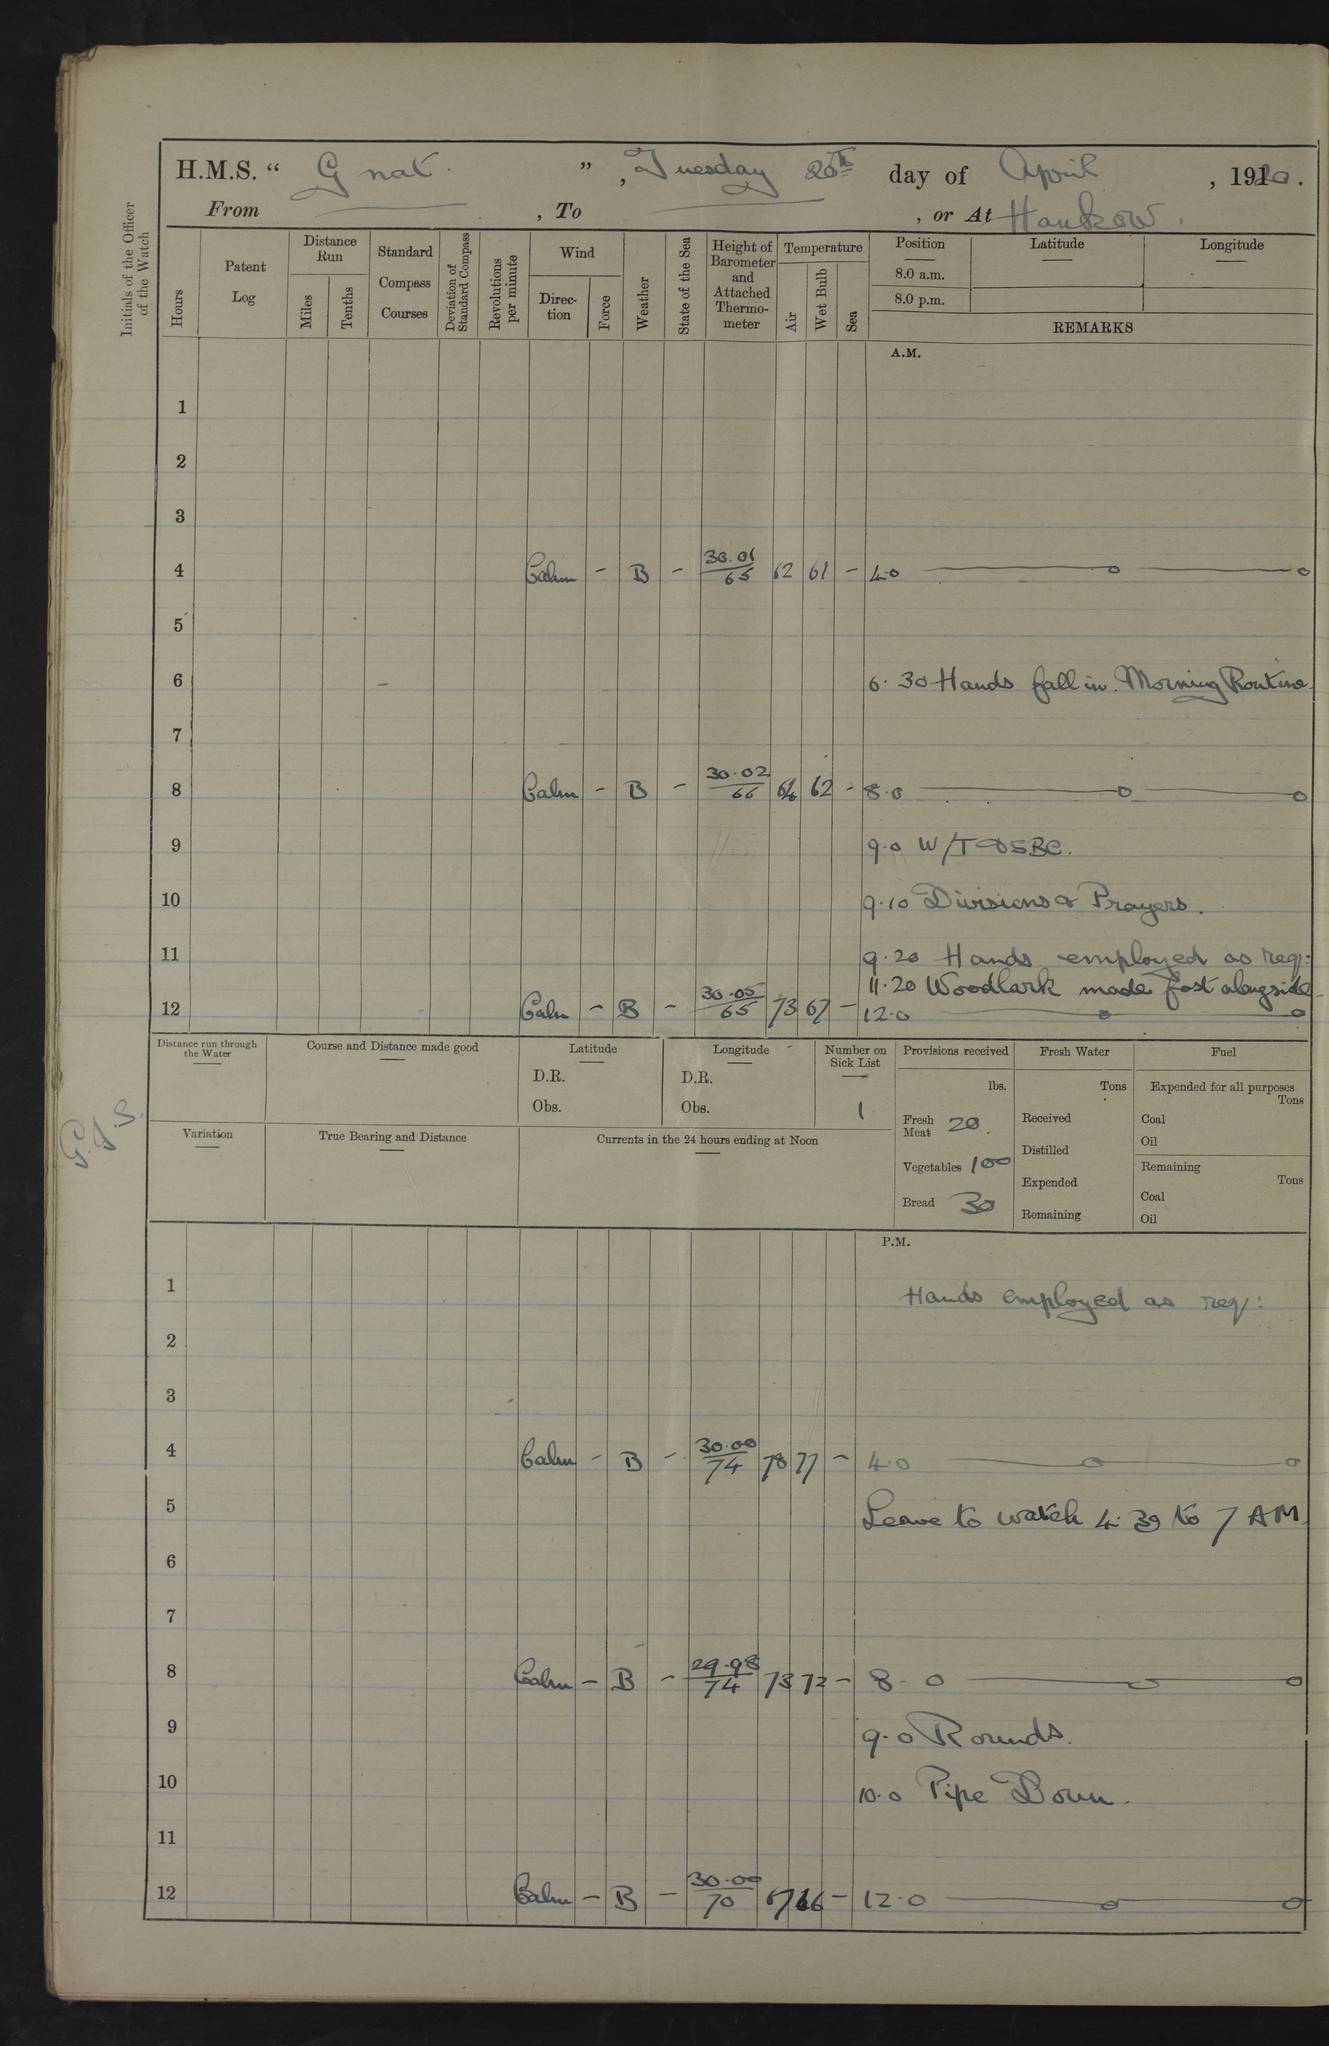 H.M.S. “ Gnat ” , Tuesday 20th day of April , 1920.
From , To , or At Hankow.
Initials of the Officer of the Watch
Hours
Patent Log
Distance Run
Miles
Tenths
Standard Compass Courses
Deviation of Standard Compass
Revolutions per minute
Wind
Direc-tion
Force
Weather
State of the Sea
Height of Barometer and Attached Thermo-meter
Temperature
Air
Wet Bulb
Sea
Position
Latitude
Longitude
8.0 a.m.
8.0 p.m.
REMARKS
A.M.
1
2
3
4 Calm - B - 30.01/65 62 61 - 4.0
5
6 6.30 Hands fall in. Morning Routine
7
8 Calm - B - 30.02/66 64 62 - 8.0
9 9.0 W/T
10 9.10 Divisions & Prayers.
11 9.20 Hands employed as req:
11.20 Woodlark made fast alongside
12 Calm - B - 30.05/65 73 67 - 12.0
Distance run through the Water
Course and Distance made good
Latitude
D.R.
Obs.
Longitude
D.R.
Obs.
Number on Sick List
1
Provisions received
lbs.
Fresh Meat 20.
Vegetables 100
Bread 30
Fresh Water
Tons
Received
Distilled
Expended
Remaining
Fuel
Expended for all purposes
Tons
Coal
Oil
Remaining
Tons
Coal
Oil
Variation
True Bearing and Distance
Currents in the 24 hours ending at Noon
P.M.
1 Hands employed as req:
2
3
4 Calm - B - 30.00/74 78 77 - 4.0
5 Leave to watch 4.30 to 7 AM
6
7
8 Calm - B - 29.98/74 73 72 - 8.0
9 9.0 Rounds.
10 10.0 Pipe Down.
11
12 Calm - B - 30.00/70 67 66 - 12.0